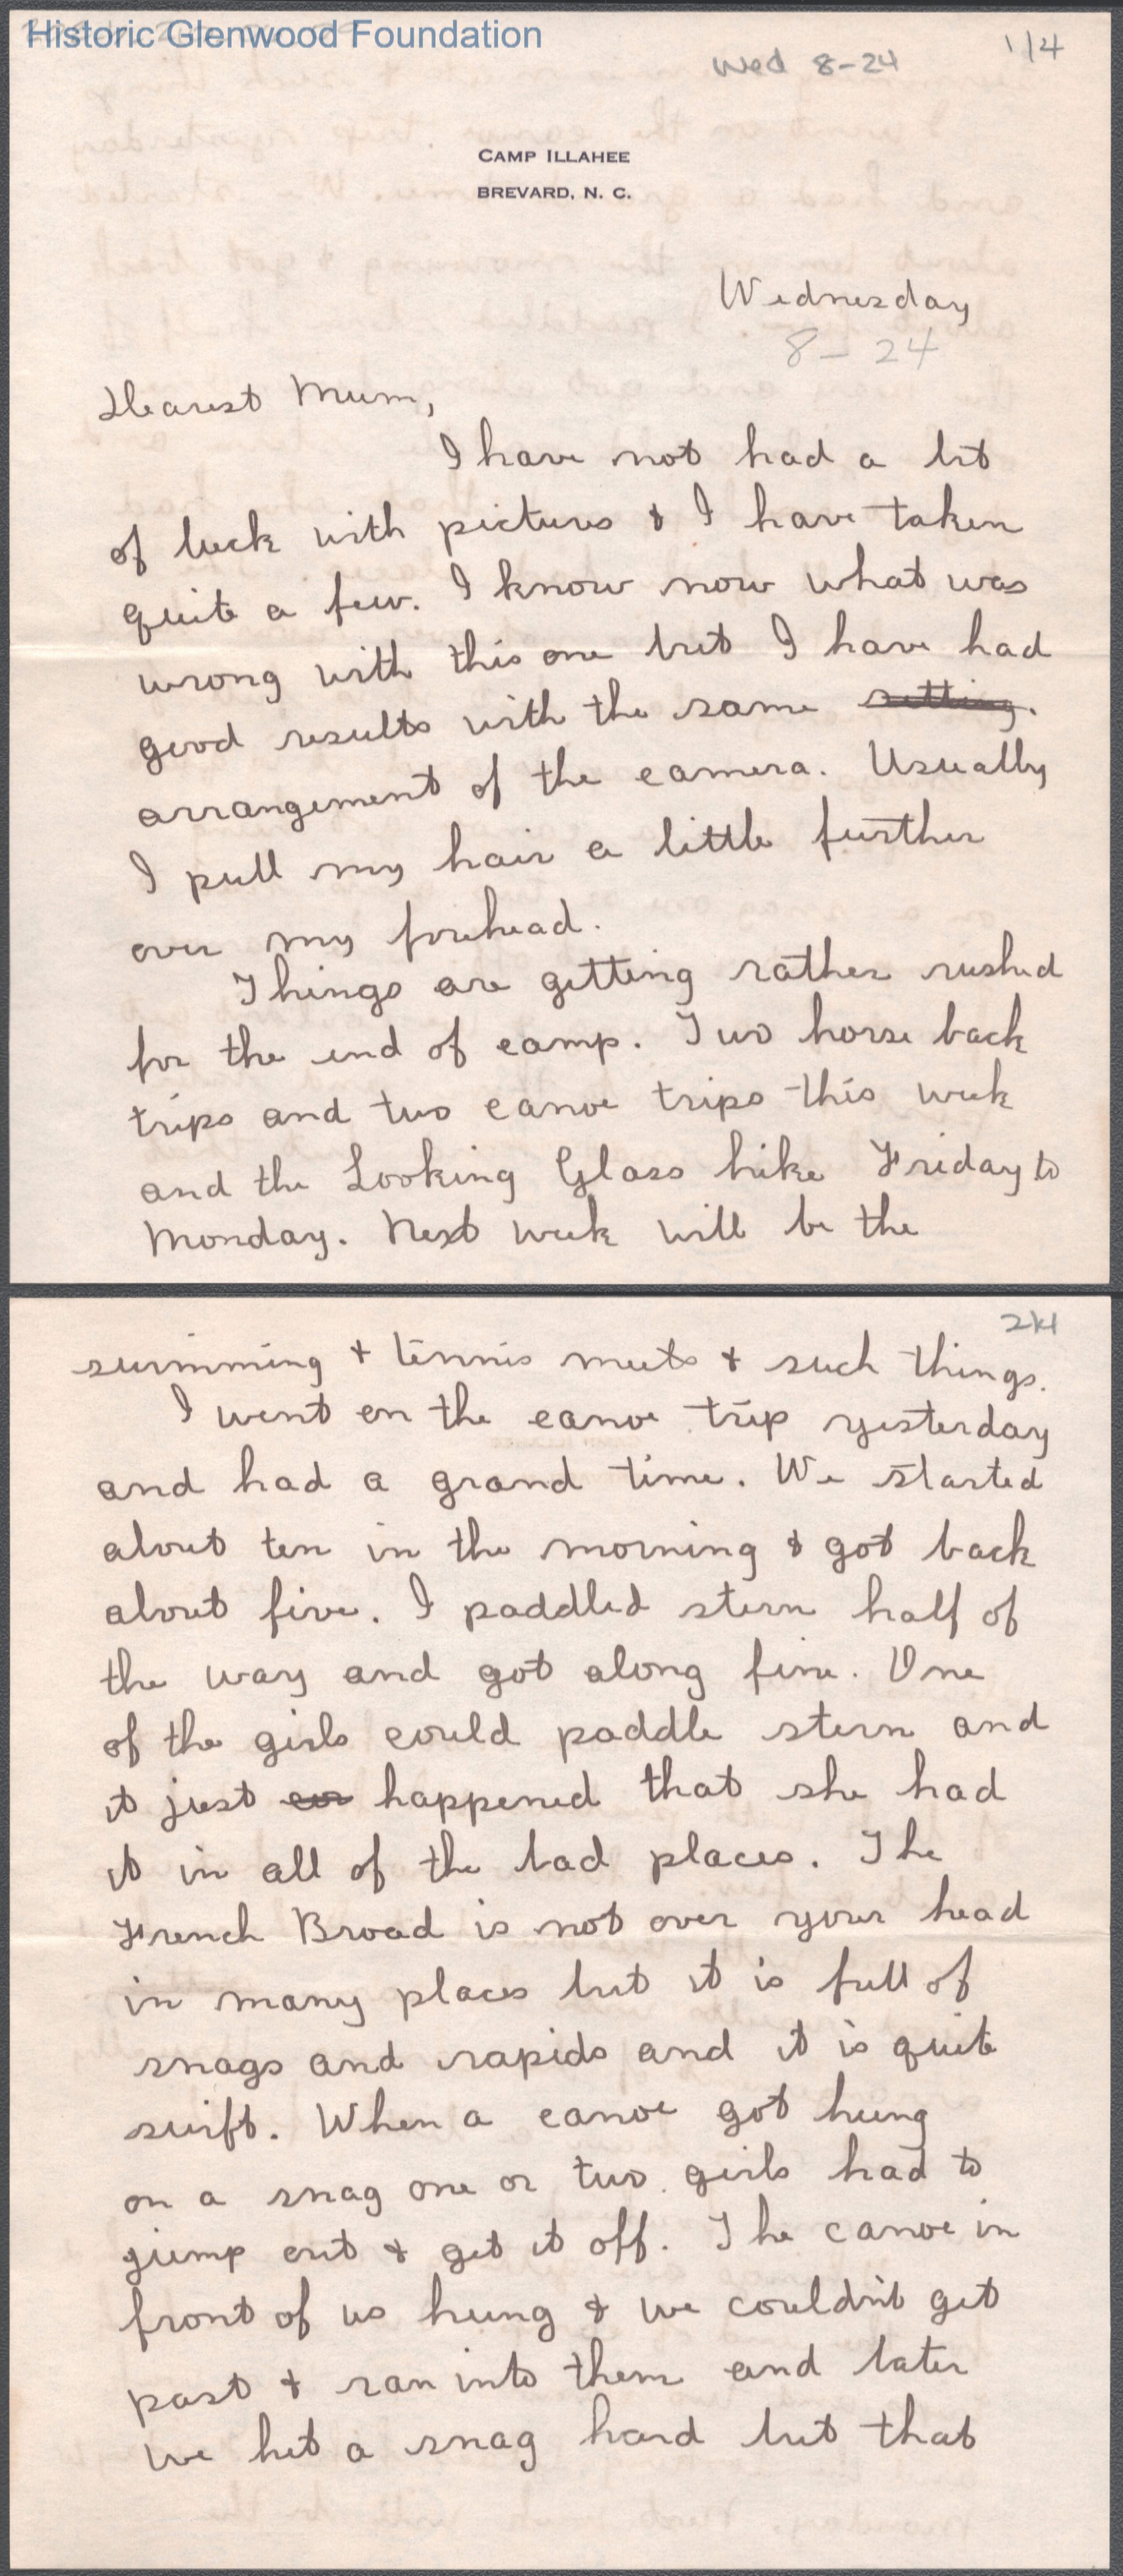 Historic Glenwood Foundation
Wed 8-24
1/4
CAMP ILLAHEE
BREVARD, N. C.
Wednesday
8-24
Dearest Mum,
I have not had a bit
of luck with pictures & I have taken
quite a few. I know now what was
wrong with this one but I have had
good results with the same setting.
arrangement of the camera. Usually
I pull my hair a little further
over my forehead.
Things are getting rather rushed
for the end of camp. Two horse back
trips and two canoe trips this week
and the Looking Glass hike Friday to
Monday. Next week will be the
2/4
swimming & tennis meets & such things.
I went on the canoe trip yesterday
and had a grand time. We started
about ten in the morning & got back
about five. I paddled stern half of
the way and got along fine. One
of the girls could paddle stern and
it just happened that she had
it in all of the bad places. The
French Broad is not over your head
in many places but it is full of
snags and rapids and it is quite
swift. When a canoe got hung
on a snag one or two girls had to
jump out & get it off. The canoe in
front of us hung & we couldn't get
past & ran into them and later
we hit a snag hard but that